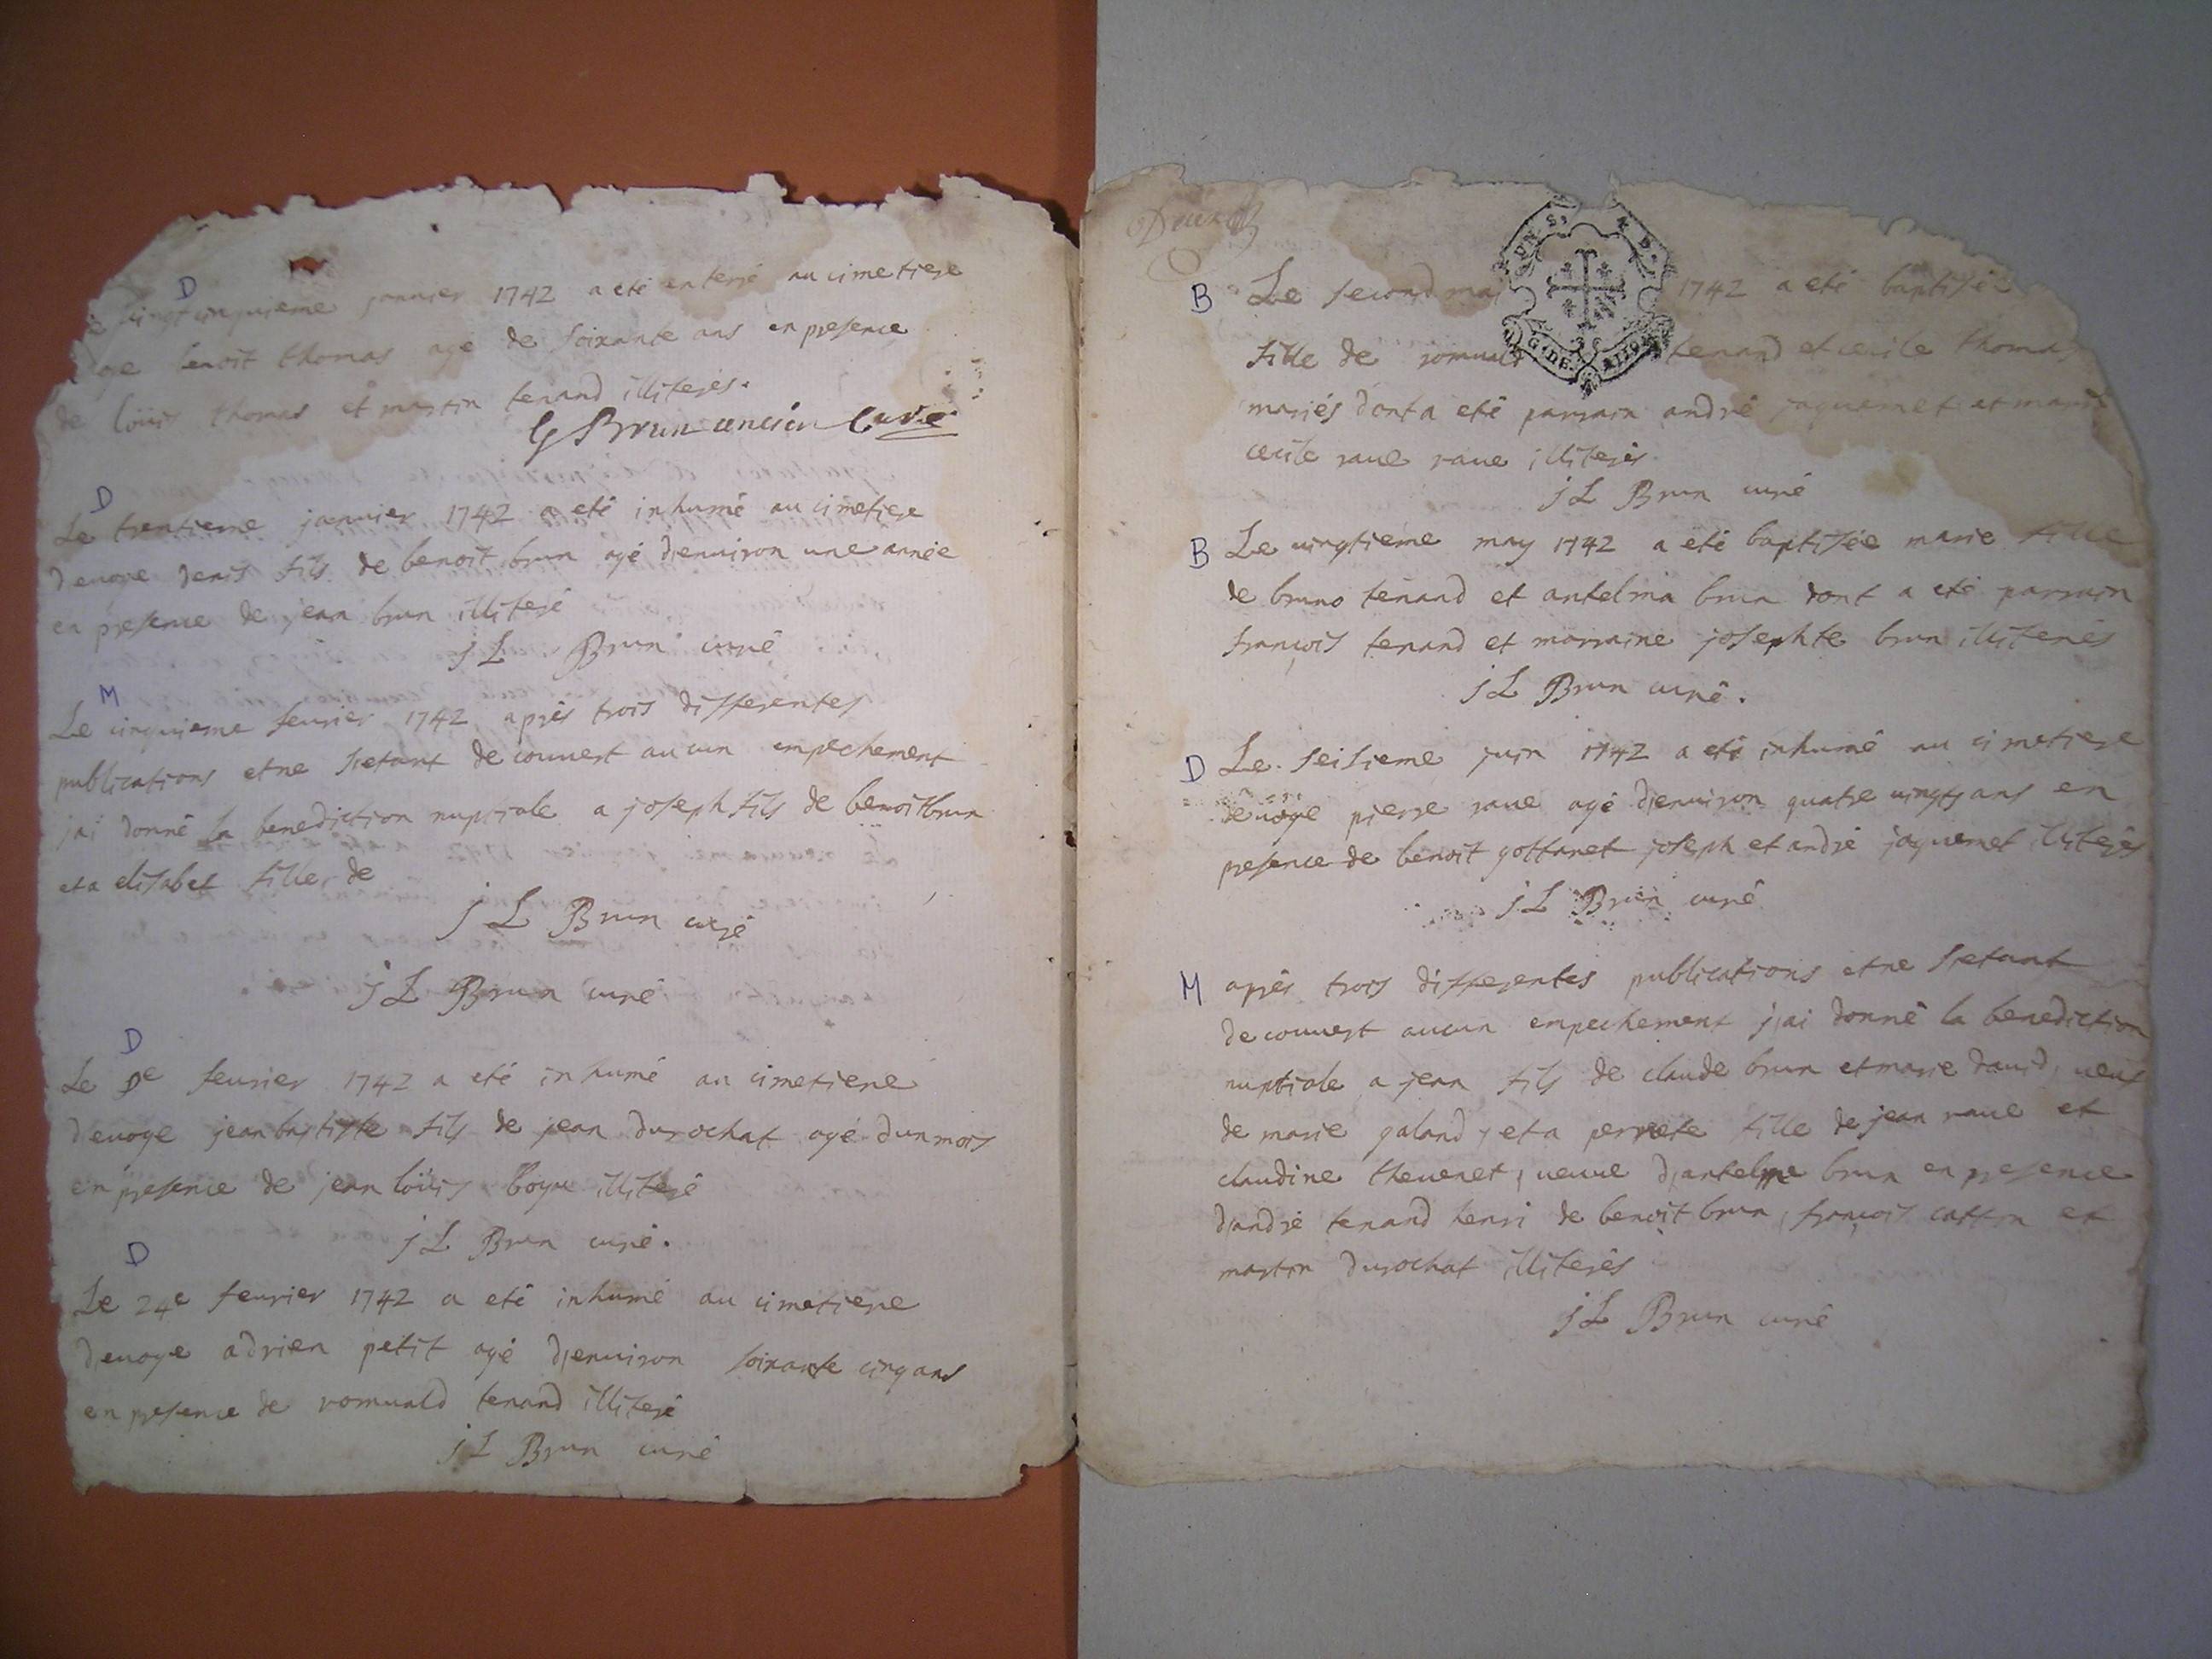 D
vingt cinquieme janvier 1742 a eté enterré au cimetiere
benoit thomas agé de soixante ans en presence
de loüis thomas et martin tenand illiterés.
G Brun ancien Curé
D
Le trentieme janvier 1742 a eté inhumé au cimetiere
devoge denis fils de benoit brun agé d'environ une année
en presence de jean brun illiteré
j L Brun curé
M
Le cinquieme fevrier 1742 après trois differentes
publications et ne s'etant decouvert aucun empechement
jai donné la benediction nuptiale a joseph fils de benoit brun
et a elisabet fille de
j L Brun curé
j L Brun curé
D
Le fevrier 1742 a eté inhumé au cimetiere
devoge jean baptiste fils de jean durochat agé dun mois
en presence de jean loüis illiteré
j L Brun curé.
D
Le 24e fevrier 1742 a eté inhumé au cimetiere
devoge adrien petit agé d'environ soixante cinq ans
en presence de romuald tenand illiteré
j L Brun curé
B Le second mai 1742 a eté baptisée
fille de romuald tenand et cecile thomas
mariés dont a eté parrain andré jaquemet et
cecile rave rave illiterés.
j L Brun curé
B Le vingtiéme may 1742 a eté baptisée marie fille
de bruno tenand et antelma brun dont a eté parrain
françois tenand et marraine josephte brun illiterés
j L Brun curé.
D Le seisieme juin 1742 a eté inhumé au cimetiere
devoge pierre rave agé d'environ quatre vingts ans en
presence de benoit gottanet joseph et andré jaquemet illiterés
j L Brun curé
M après trois differentes publications et ne s'etant
decouvert aucun empechement j'ai donné la benediction
nuptiale a jean fils de claude brun et marie david, veuf
de marie galand, et a perrete fille de jean rave et
claudine thevenet, veuve d'antelme brun en presence
d'andré tenand henri de benoit brun, françois et
martin durochat illiterés
j L Brun curé